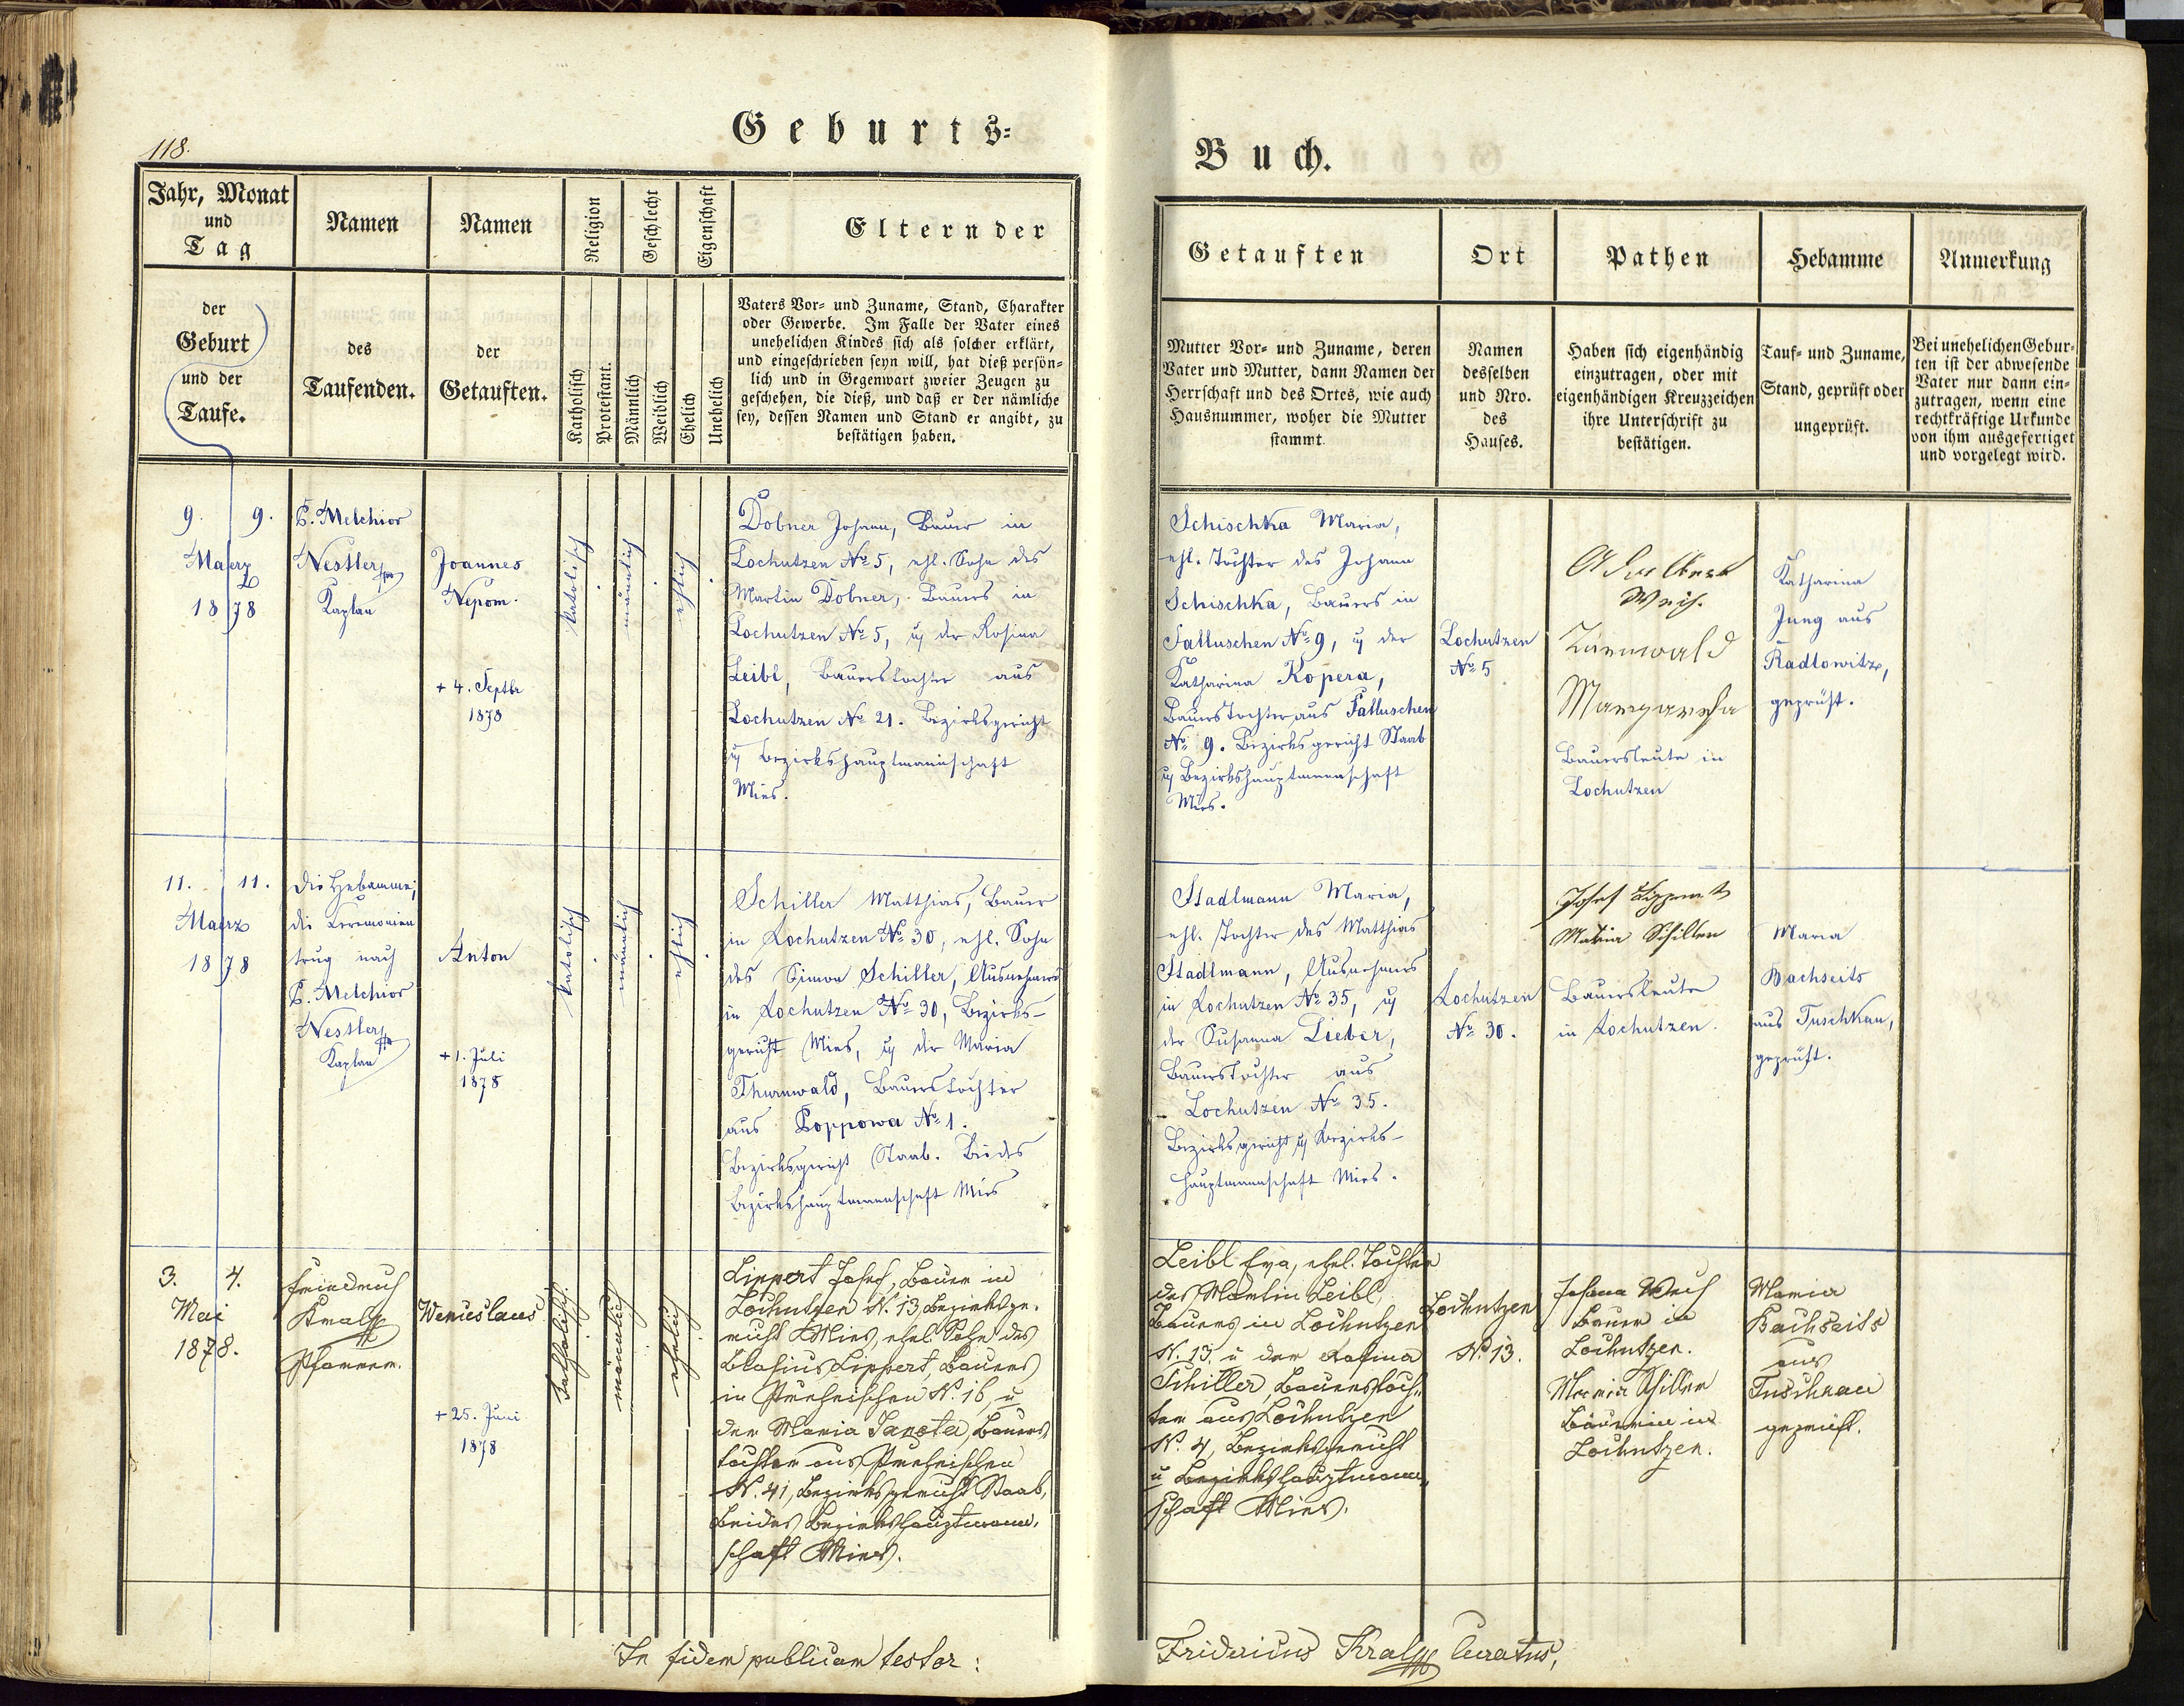 118.
Geburts-
Buch.
Jahr, Monat
und
Tag
der
Geburt
und der
Taufe.
Namen
des
Taufenden.
Namen
der
Getauften.
Religion
Katholisch
Protestant.
Geschlecht
Männlich
Weiblich
Eigenschaft
Ehelich
Unehelich
Eltern der
Vaters Vor- und Zuname, Stand, Charakter
oder Gewerbe. Im Falle der Vater eines
unehelichen Kindes sich als solcher erklärt,
und eingeschrieben seyn will, hat dieß persön-
lich und in Gegenwart zweier Zeugen zu
geschehen, die dieß, und daß er der nämliche
sey, dessen Namen und Stand er angibt, zu
bestätigen haben.
Getauften
Mutter Vor- und Zuname, deren
Vater und Mutter, dann Namen der
Herrschaft und des Ortes, wie auch
Hausnummer, woher die Mutter
stammt.
Ort
Namen
desselben
und Nro.
des
Hauses.
Pathen
Haben sich eigenhändig
einzutragen, oder mit
eigenhändigen Kreuzzeichen
ihre Unterschrift zu
bestätigen.
Hebamme
Tauf- und Zuname,
Stand, geprüft oder
ungeprüft.
Anmerkung
Bei unehelichen Gebur-
ten ist der abwesende
Vater nur dann ein-
zutragen, wenn eine
rechtkräftige Urkunde
von ihm ausgefertiget
und vorgelegt wird.
9. 9.
Maerz
1878
P. Melchior
Nestler
Kaplan
Joannes
Nepom.
+ 4. Septbr
1878
katolisch
männlich
ehlich
Dobner Johann, Bauer in
Lochutzen No 5, ehl. Sohn des
Martin Dobner, Bauers in
Lochutzen No 5, u der Rosina
Leibl, Bauerstochter aus
Lochutzen No 21. Bezirksgericht
u Bezirkshauptmannschaft
Mies.
Schischka Maria,
ehl. Tochter des Johann
Schischka, Bauers in
Falluschen No 9, u der
Katharina Kopera,
Bauerstochter aus Falluschen
No 9. Bezirksgericht Staab
u Bezirkshauptmannschaft
Mies.
Lochutzen
No 5
Adalbert
Weß.
Margaretha
Bauersleute in
Lochutzen
Katharina
Jung aus
Radlowitz,
geprüft.
11. 11.
Maerz
1878
die Hebamme;
die Ceremonien
trug nach
P. Melchior
Nestler
Kaplan
Anton
+ 1. Juli
1878
katolisch
männlich
ehlich
Schiller Matthias, Bauer
in Lochutzen No 30, ehl. Sohn
des Simon Schiller, Ausnehmers
in Lochutzen No 30, Bezirks-
gericht Mies, u der Maria
Thurnwald, Bauerstochter
aus Poppowa No 1.
Bezirksgericht Staab. Beides
Bezirkshauptmannschaft Mies
Stadlmann Maria,
ehl. Tochter des Matthias
Stadlmann, Ausnehmers
in Lochutzen No 35, u
der Susanna Lieber,
Bauerstochter aus
Lochutzen No 35.
Bezirksgericht u Bezirks-
hauptmannschaft Mies.
Lochutzen
No 30.
Josef Lippert
Maria Schiller
Bauersleute
in Lochutzen.
Maria
Bachseits
aus Tuschkau,
geprüft.
3. 4.
Mai
1878.
Friedrich
Kral
Pfarrer.
Wenceslaus
+ 25. Juni
1878
katholisch.
männlich
ehelich
Lippert Josef, Bauer in
Lochutzen N. 13 Bezirksge-
richt Mies, ehel. Sohn des
Blasius Lippert, Bauers
in N. 16, u
der Maria Bauers-
tochter aus
N. 41, Bezirksgericht Staab,
Beides Bezirkshauptmann-
schaft Mies.
Leibl Eva, ehel. Tochter
des Martin Leibl,
Bauers in Lochutzen
N. 13. u der Rosina
Schiller, Bauerstoch-
ter aus Lochutzen
N. 4, Bezirksgericht
u Bezirkshauptmann-
schaft Mies.
Lochutzen
N. 13.
Johann Weß
Bauer in
Lochutzen.
Maria Schiller
Bäuerin in
Lochutzen.
Maria
Bachseits
aus
Tuschkau
geprüft.
In fidem publicam testor:
Fridericus Kral Curatus,